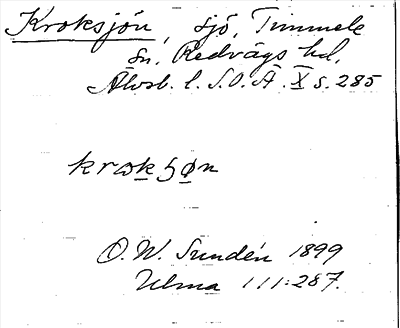 Kroksjön, sjö, Timmele
sn, Redvägs hd,
Älvsb. l. S.O.Ä. X s. 285
krokʃøn
O. W. Sundén 1899
Ulma 111:287.